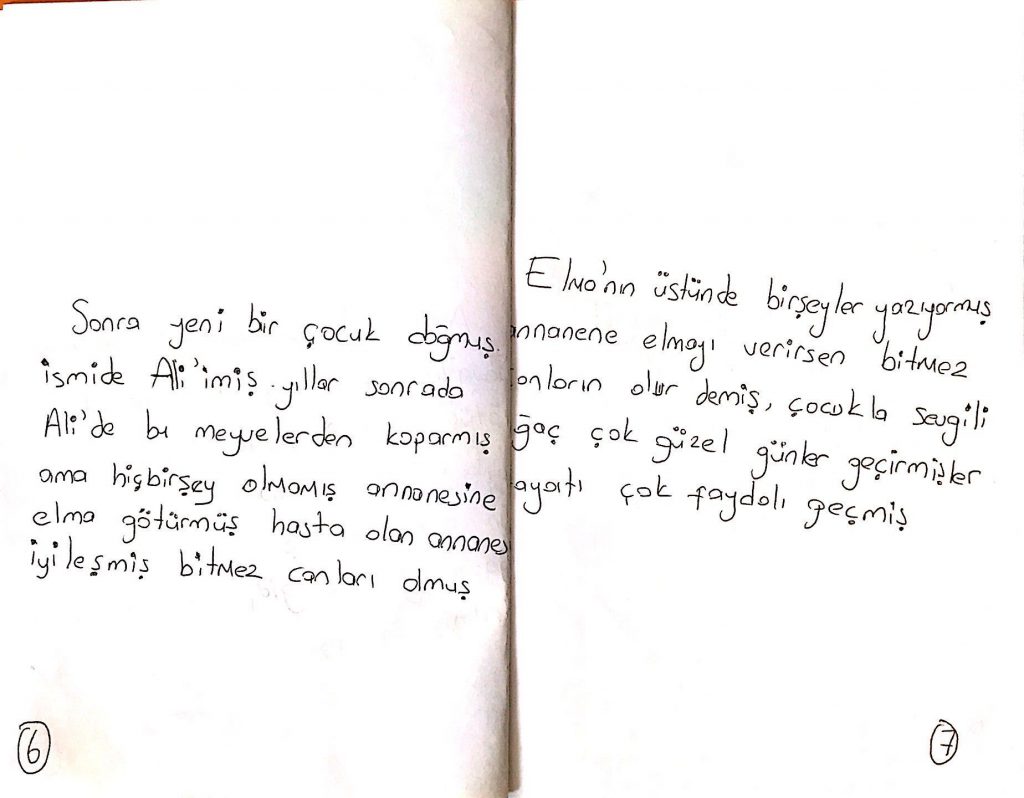 Sonra yeni bir çocuk doğmuş.
ismide Ali'imiş. yıllar sonrada
Ali'de bu meyvelerden koparmış
ama hiçbirşey olmamış annanesine
elma götürmüş hasta olan annanes
iyileşmiş bitmez canları olmuş
6
Elma'nın üstünde birşeyler yazıyormuş
annanene elmayı verirsen bitmez
anların olur demiş, çocukla sevgili
ğaç çok güzel günler geçirmişler
ayatı çok faydalı geçmiş
7